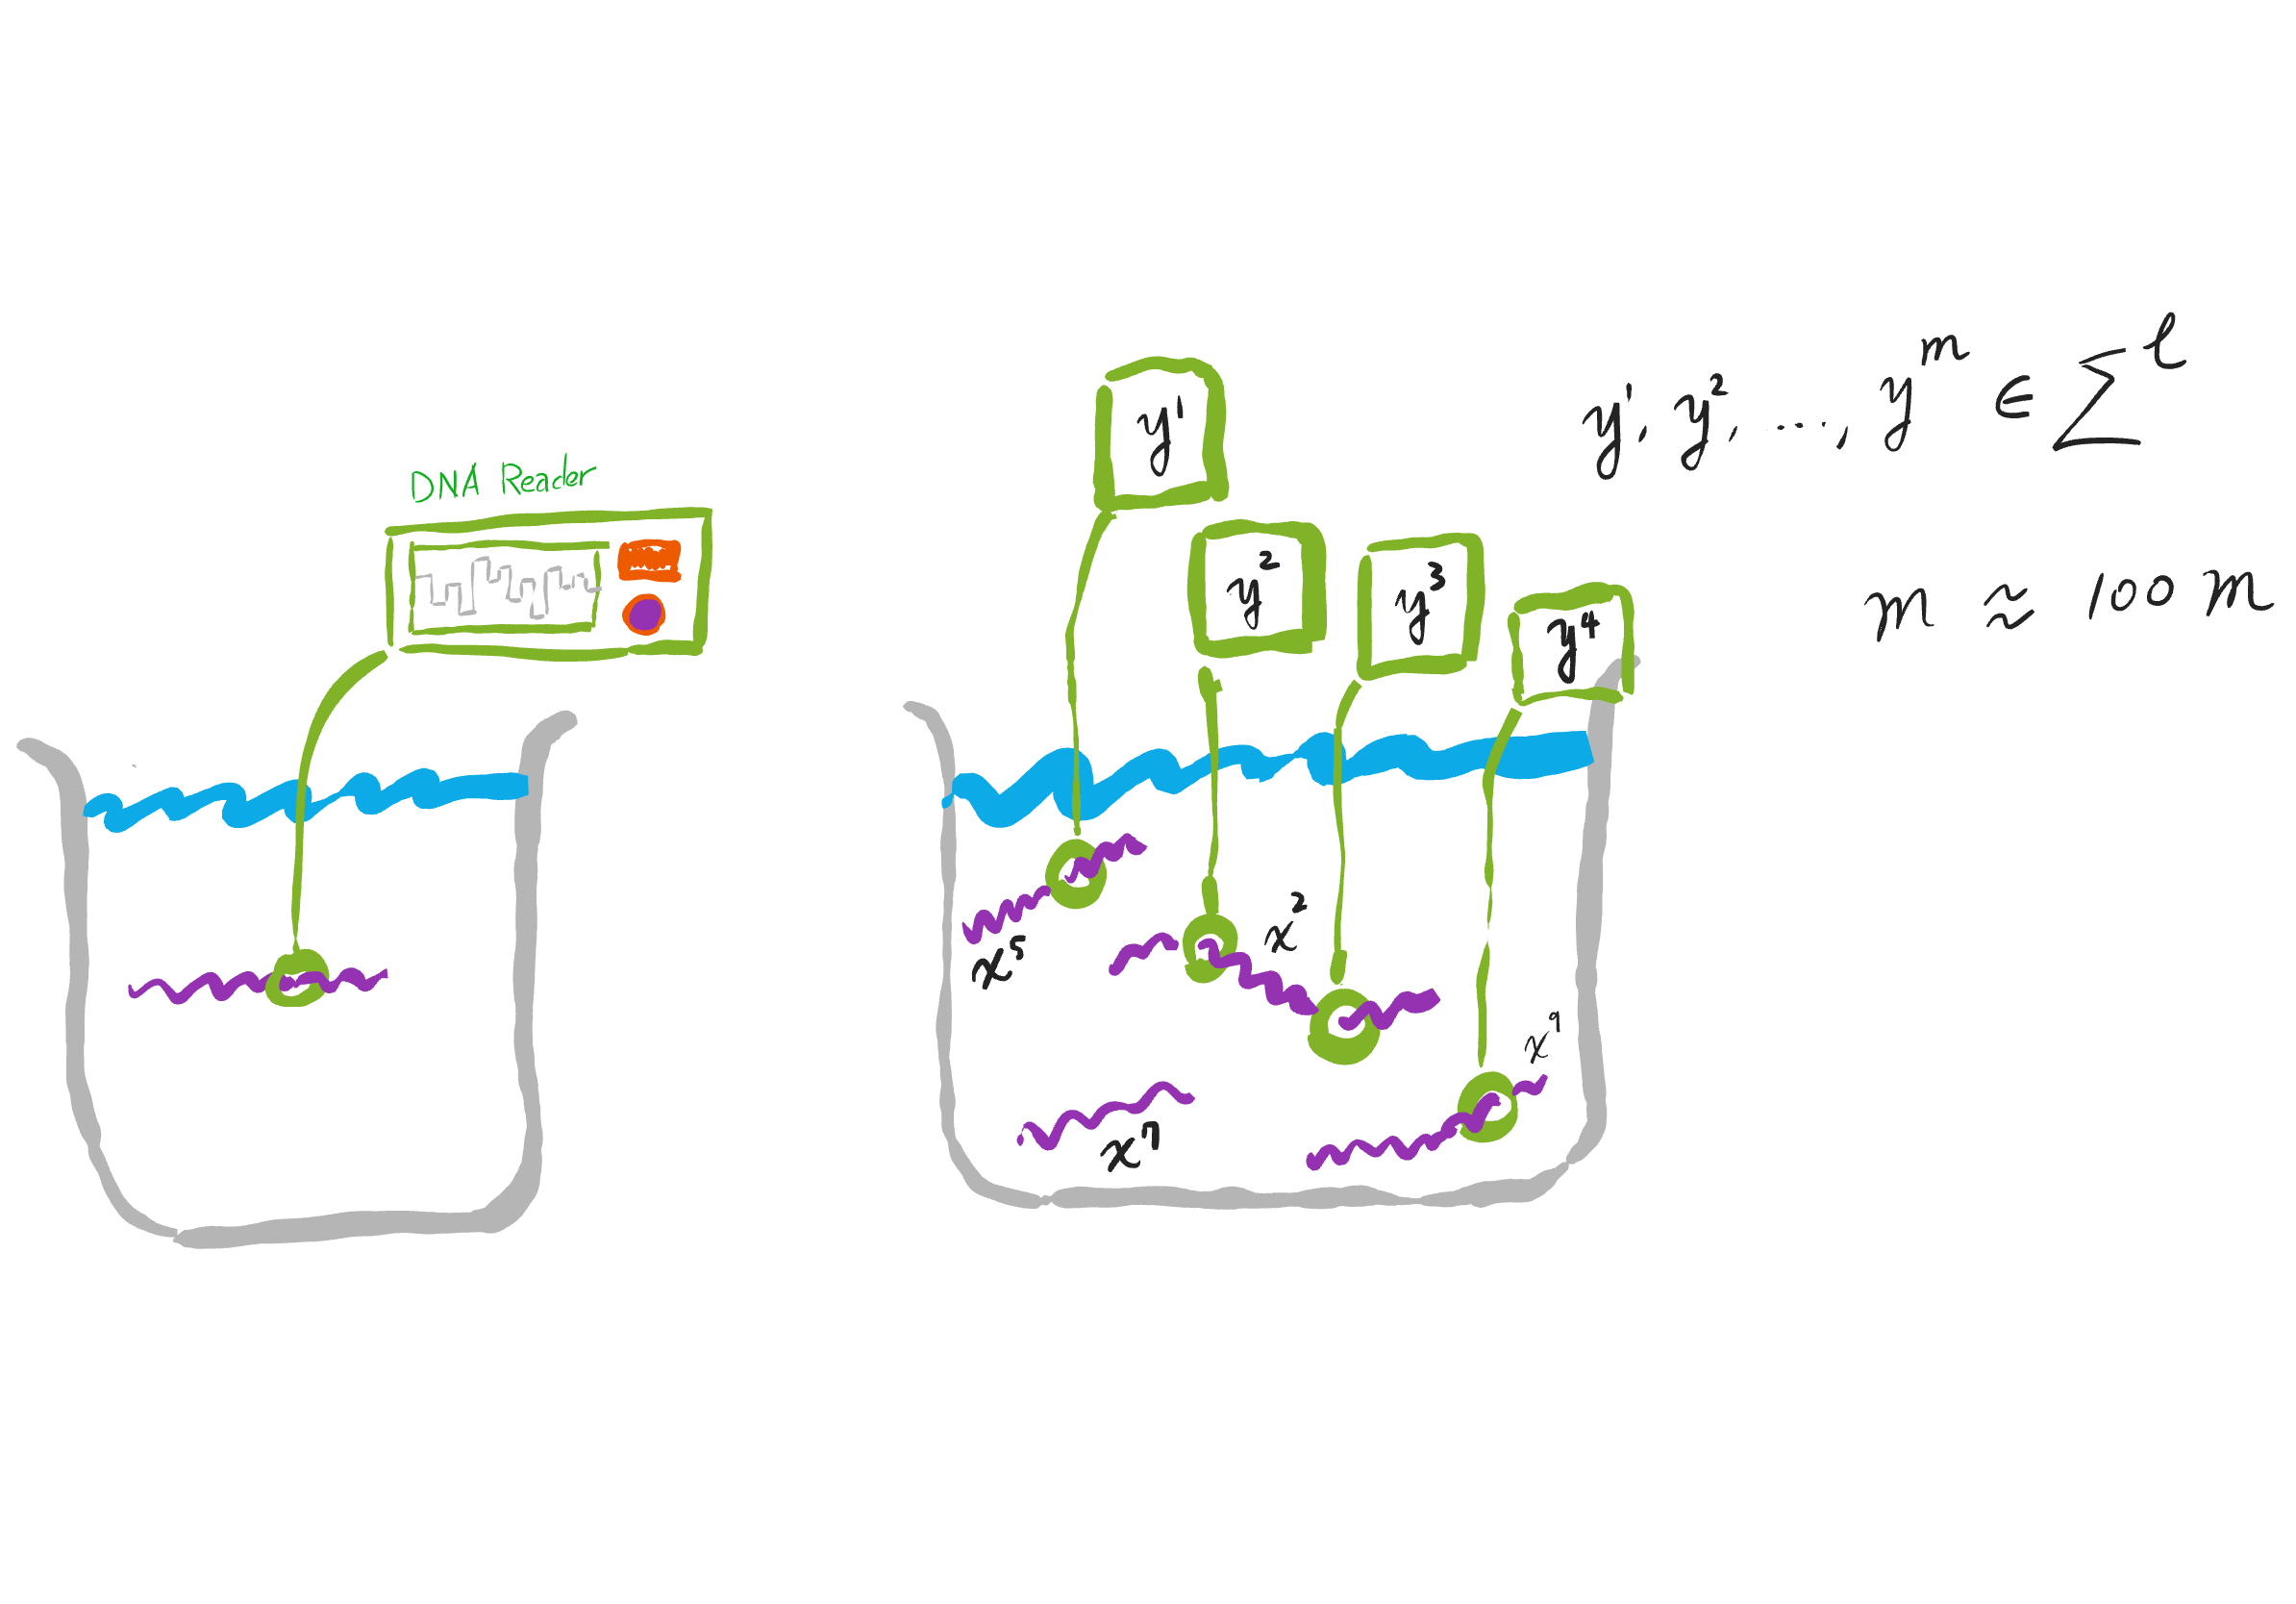 DNA Reader
y¹
y²
y³
y⁴
x⁵
x²
x⁷
x⁹
y¹, y², ..., yᵐ ∈ Σˡ
m ≈ 100 m